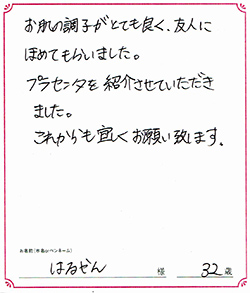 お肌の調子がとても良く、友人に
ほめてもらいました。
プラセンタを紹介させていただき
ました。
これからも宜しくお願い致します。
お名前(本名orペンネーム)
はるぜん 様 32歳